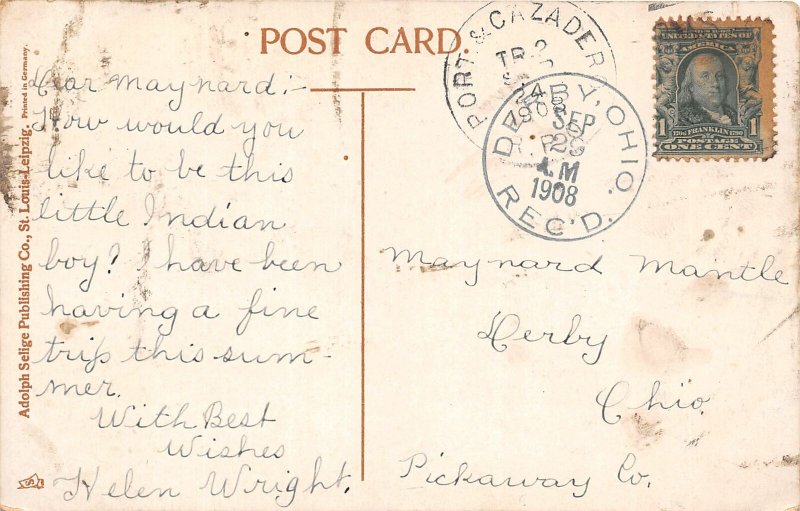 POST CARD.
PORT & CAZADERO
TR 2
24
1908
DERBY, OHIO.
SEP
29
A.M
1908
REC'D.
UNITED STATES OF
AMERICA
1 1706 FRANKLIN 1790 1
POSTAGE
ONE CENT
Adolph Selige Publishing Co., St. Louis-Leipzig, Printed in Germany.
Dear Maynard:-
How would you
like to be this
little Indian
boy? I have been
having a fine
trip this sum-
mer.
With Best
Wishes
Helen Wright.
Maynard Mantle
Derby
Ohio.
Pickaway Co.